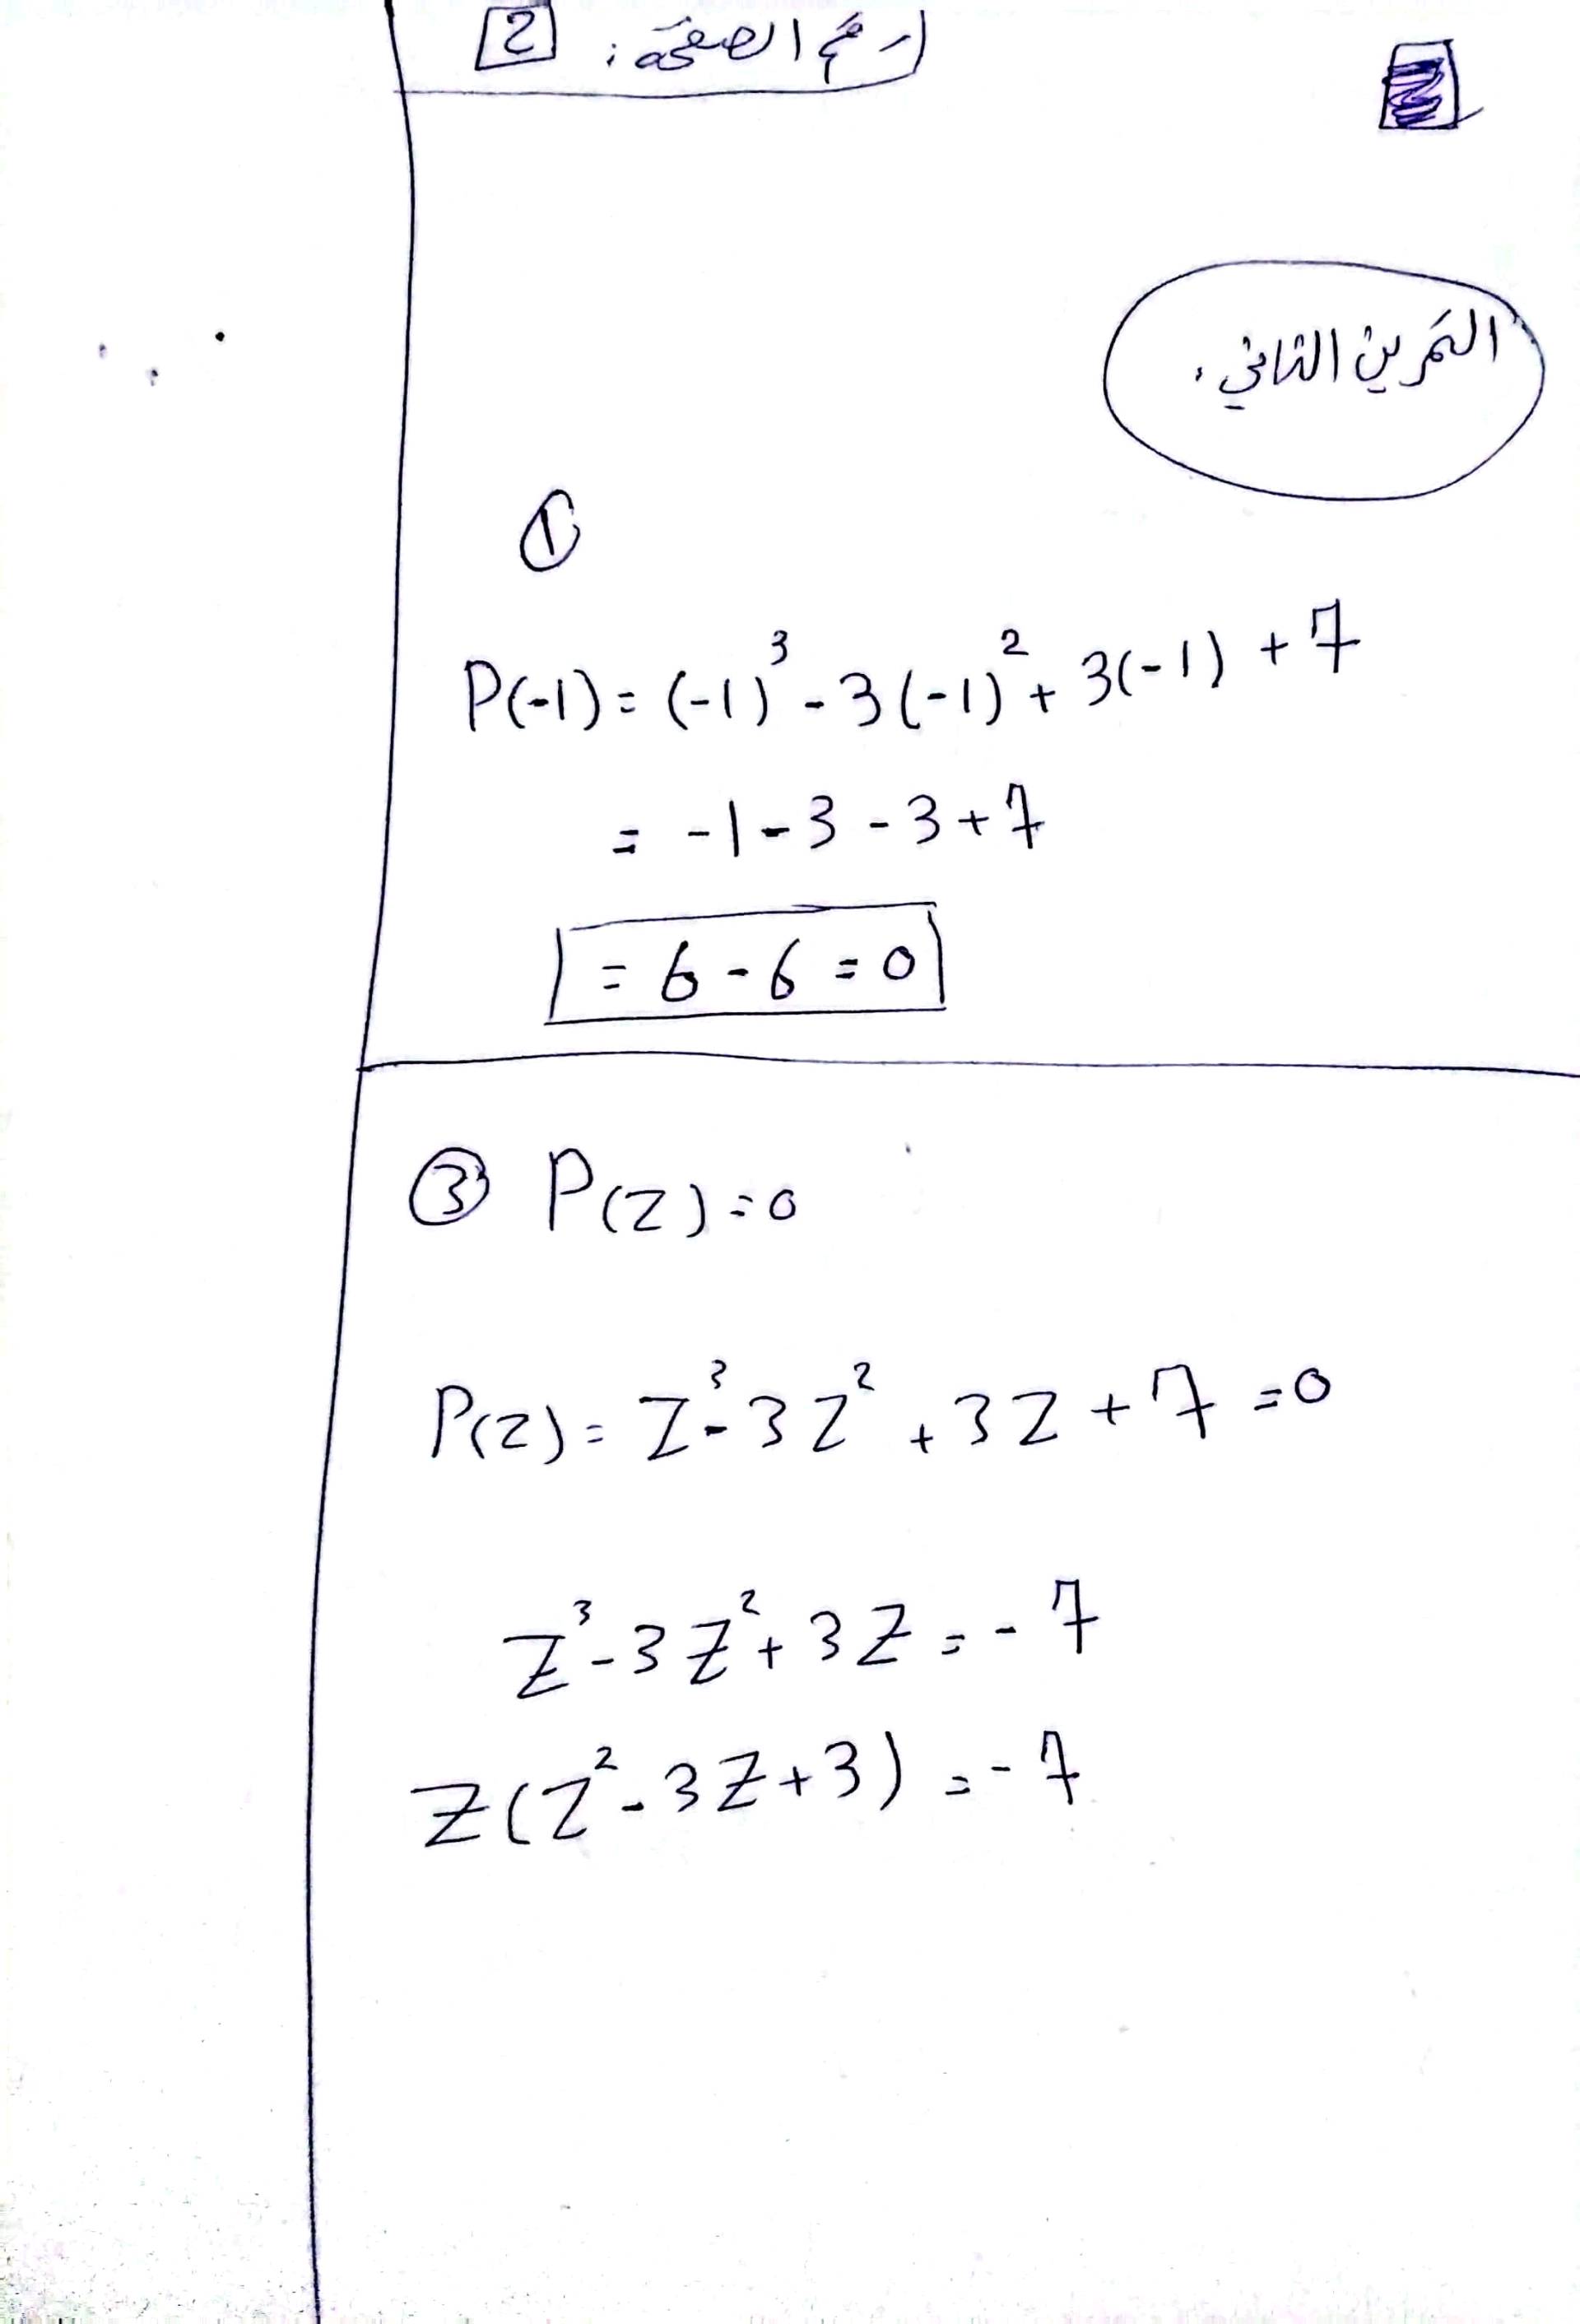 رقم الصفحة: 2
التمرين الثاني:
1
P(-1) = (-1)³ - 3(-1)² + 3(-1) + 7
= -1 - 3 - 3 + 7
= 6 - 6 = 0
3 P(Z) = 0
P(Z) = Z³ - 3Z² + 3Z + 7 = 0
Z³ - 3Z² + 3Z = -7
Z(Z² - 3Z + 3) = -7